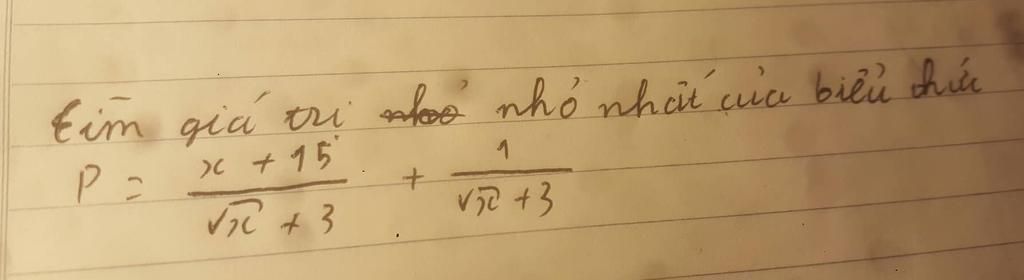 tìm giá trị nhỏ nhỏ nhất của biểu thức
P = \frac{x + 15}{\sqrt{x} + 3} + \frac{1}{\sqrt{x} + 3}